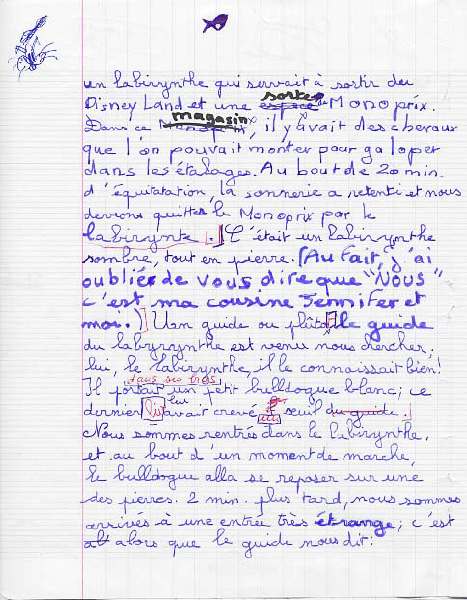 un labirynthe qui servait à sortir du
Disney Land et une espace sorte de Monoprix.
Dans ce Monoprix magasin, il y avait des chevaux
que l'on pouvait monter pour galoper
dans les étalages. Au bout de 20 min.
d'équitatation, la sonnerie a retenti et nous
devions quitter le Monoprix par le
labirynte. C'était un labirynthe
sombre, tout en pierre. (Au fait, j'ai
oublié de vous dire que "NOUS"
c'est ma cousine Jennifer et
moi.) Un guide ou plûtôt le guide
du labyrynthe est venu nous chercher,
lui, le labirynthe, il le connaissait bien!
dans ses bras
Il portait un petit bulldogue blanc; ce
dernier lui avait crevé seuil du guide.
Nous sommes rentrés dans le labirynthe.
et au bout d'un moment de marche,
le bulldogue alla se reposer sur une
des pierres. 2 min. plus tard, nous sommes
arrivés à une entrée très étrange; c'est
alors que le guide nous dit: